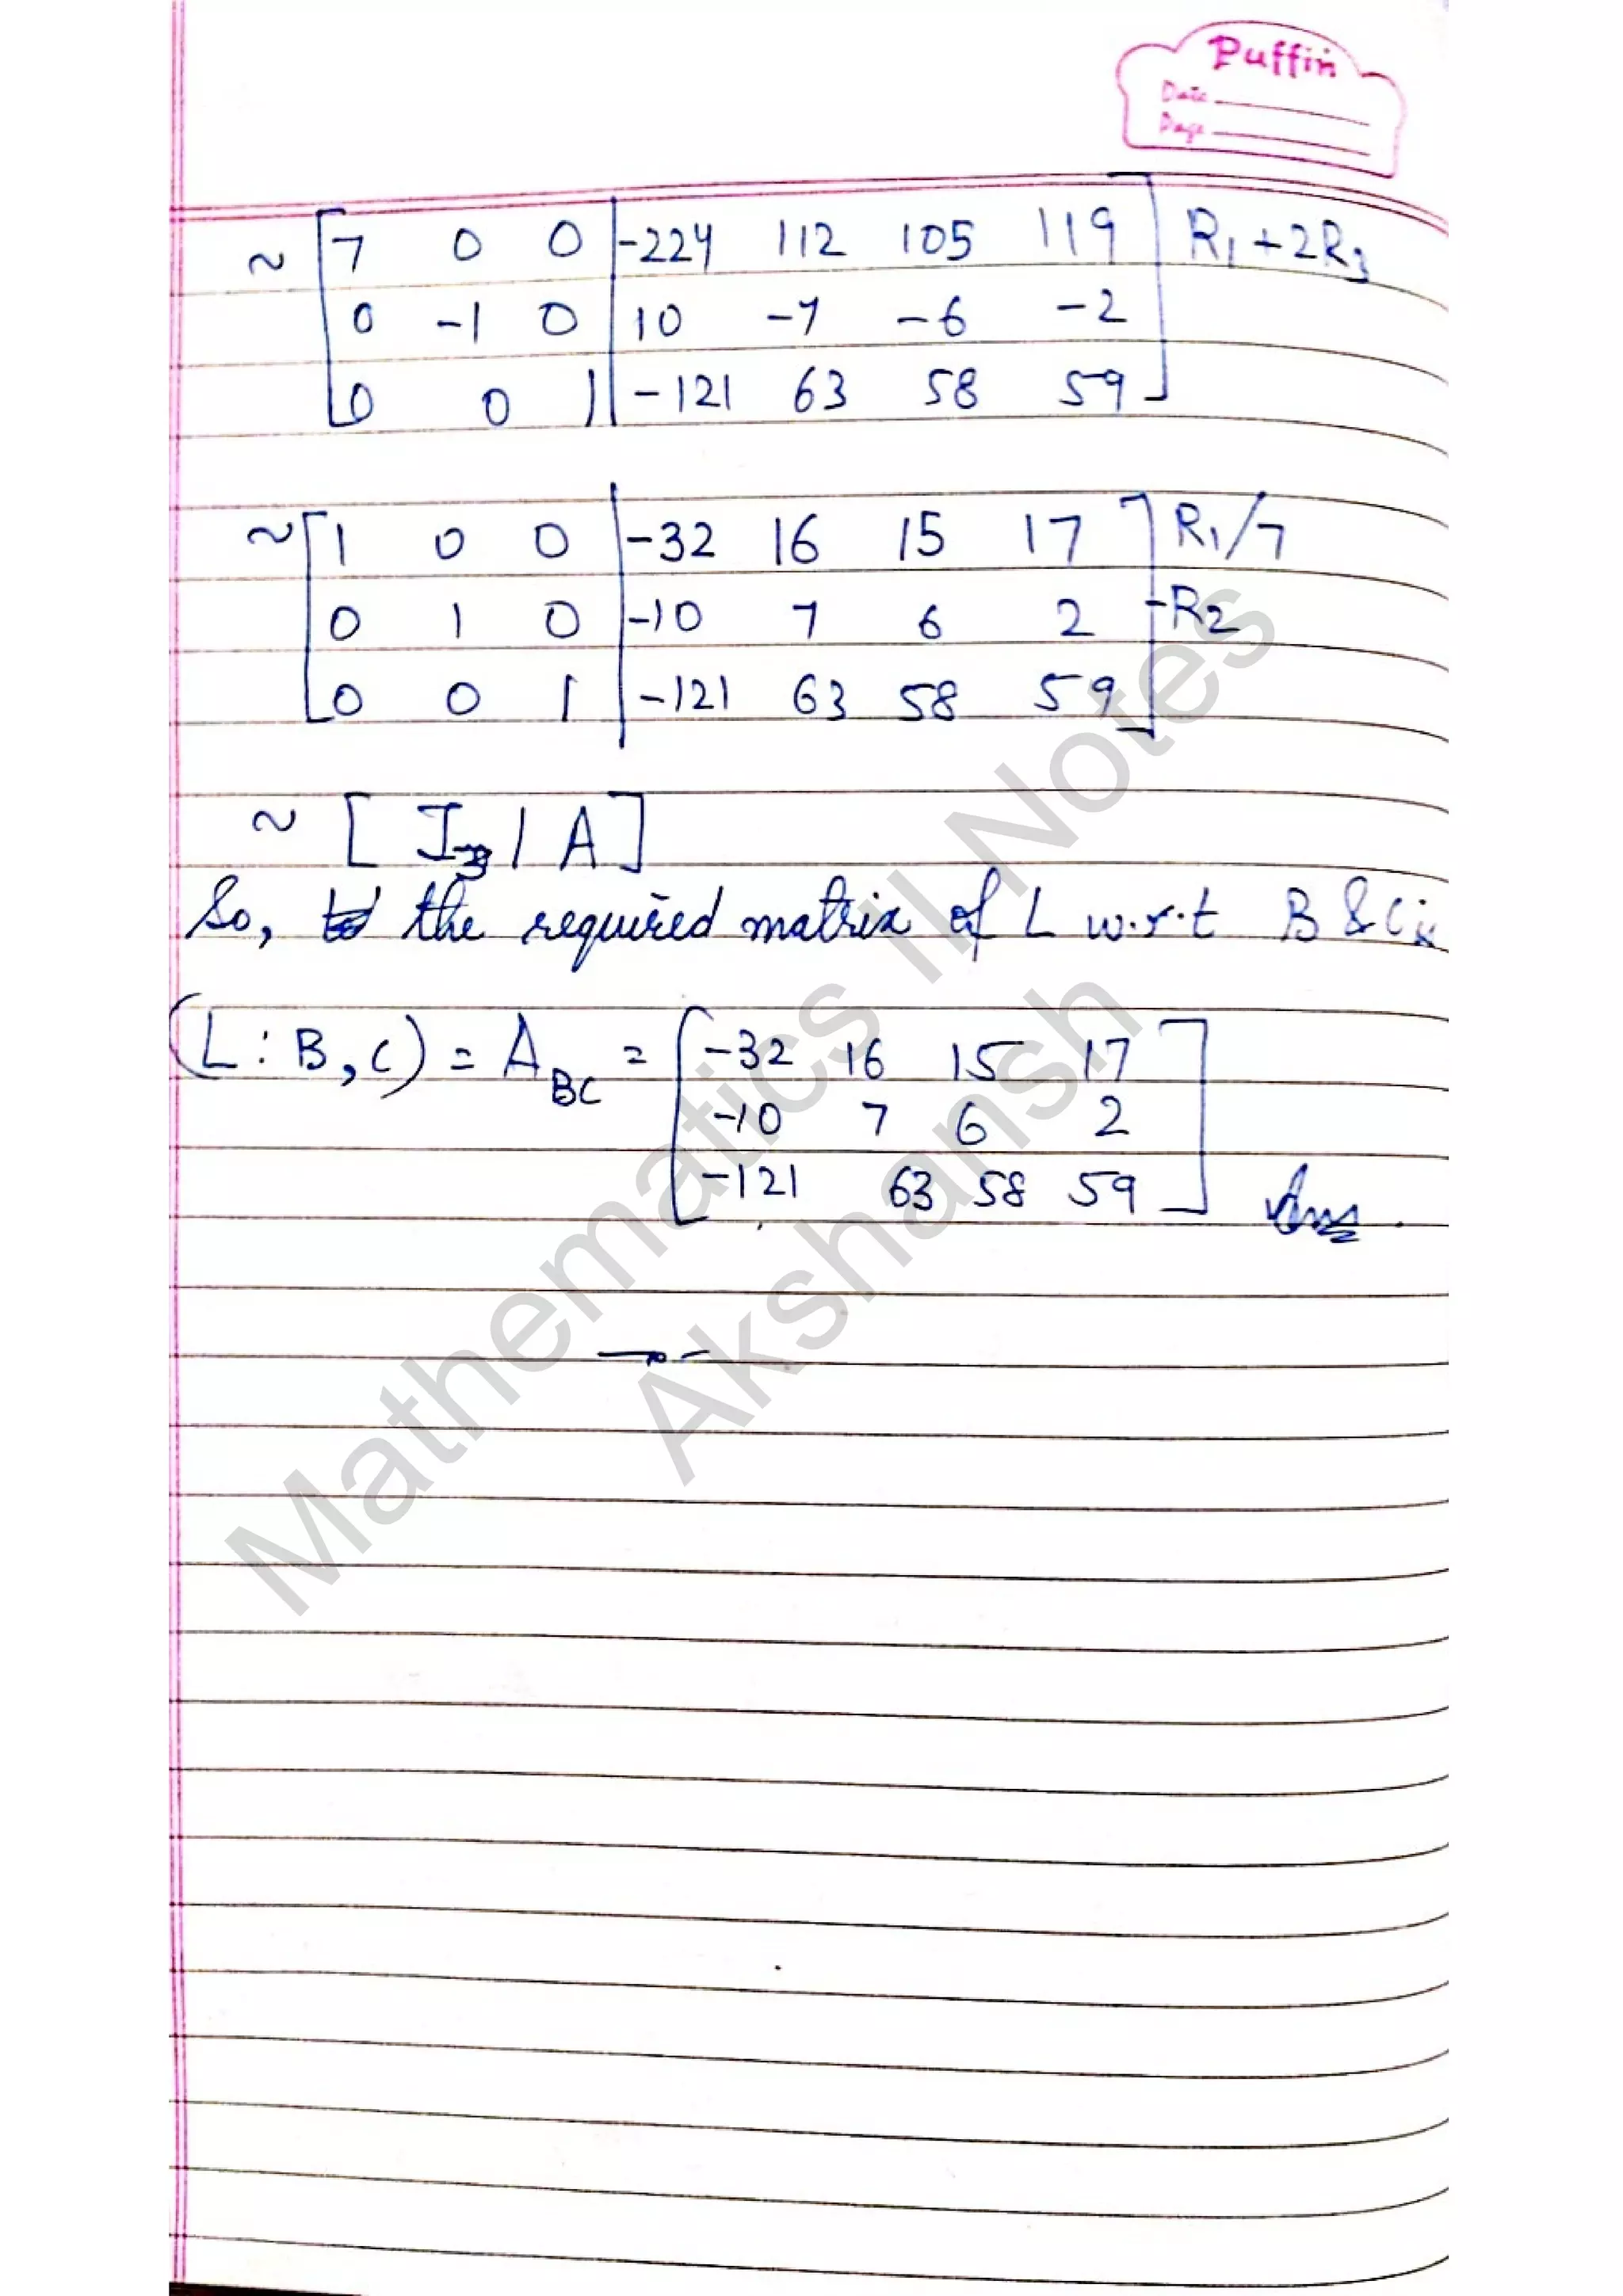 Puffin
Date
Page
~ [ 7 0 0 | -224 112 105 119 ] R₁+2R₃
0 -1 0 | 10 -7 -6 -2
0 0 1 | -121 63 58 59
~ [ 1 0 0 | -32 16 15 17 ] R₁/7
0 1 0 | -10 7 6 2 -R2
0 0 1 | -121 63 58 59
~ [ I₃ | A ]
So, the required matrix of L w.r.t B & C is
(L : B, C) = A_BC = [ -32 16 15 17 ]
-10 7 6 2
-121 63 58 59
Ans
Mathematics II Notes
Akshansh